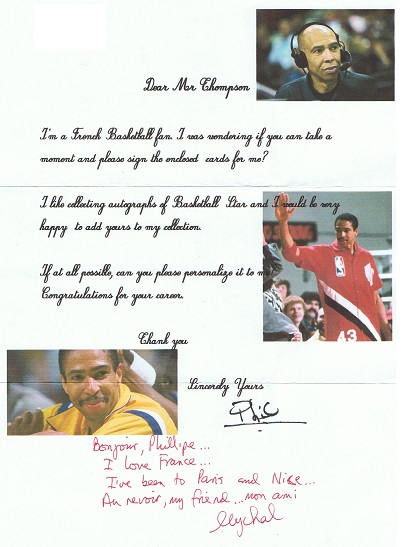 Dear Mr Thompson
I'm a French Basketball fan. I was wondering if you can take a
moment and please sign the enclosed cards for me?
I like collecting autographs of Basketball Star and I would be very
happy to add yours to my collection.
If at all possible, can you please personalize it to me?
Congratulations for your career.
43
Thank you
Sincerely Yours
Phil
Bonjour, Phillipe...
I love France...
I've been to Paris and Nice...
Au revoir, my friend...mon ami
Mychal